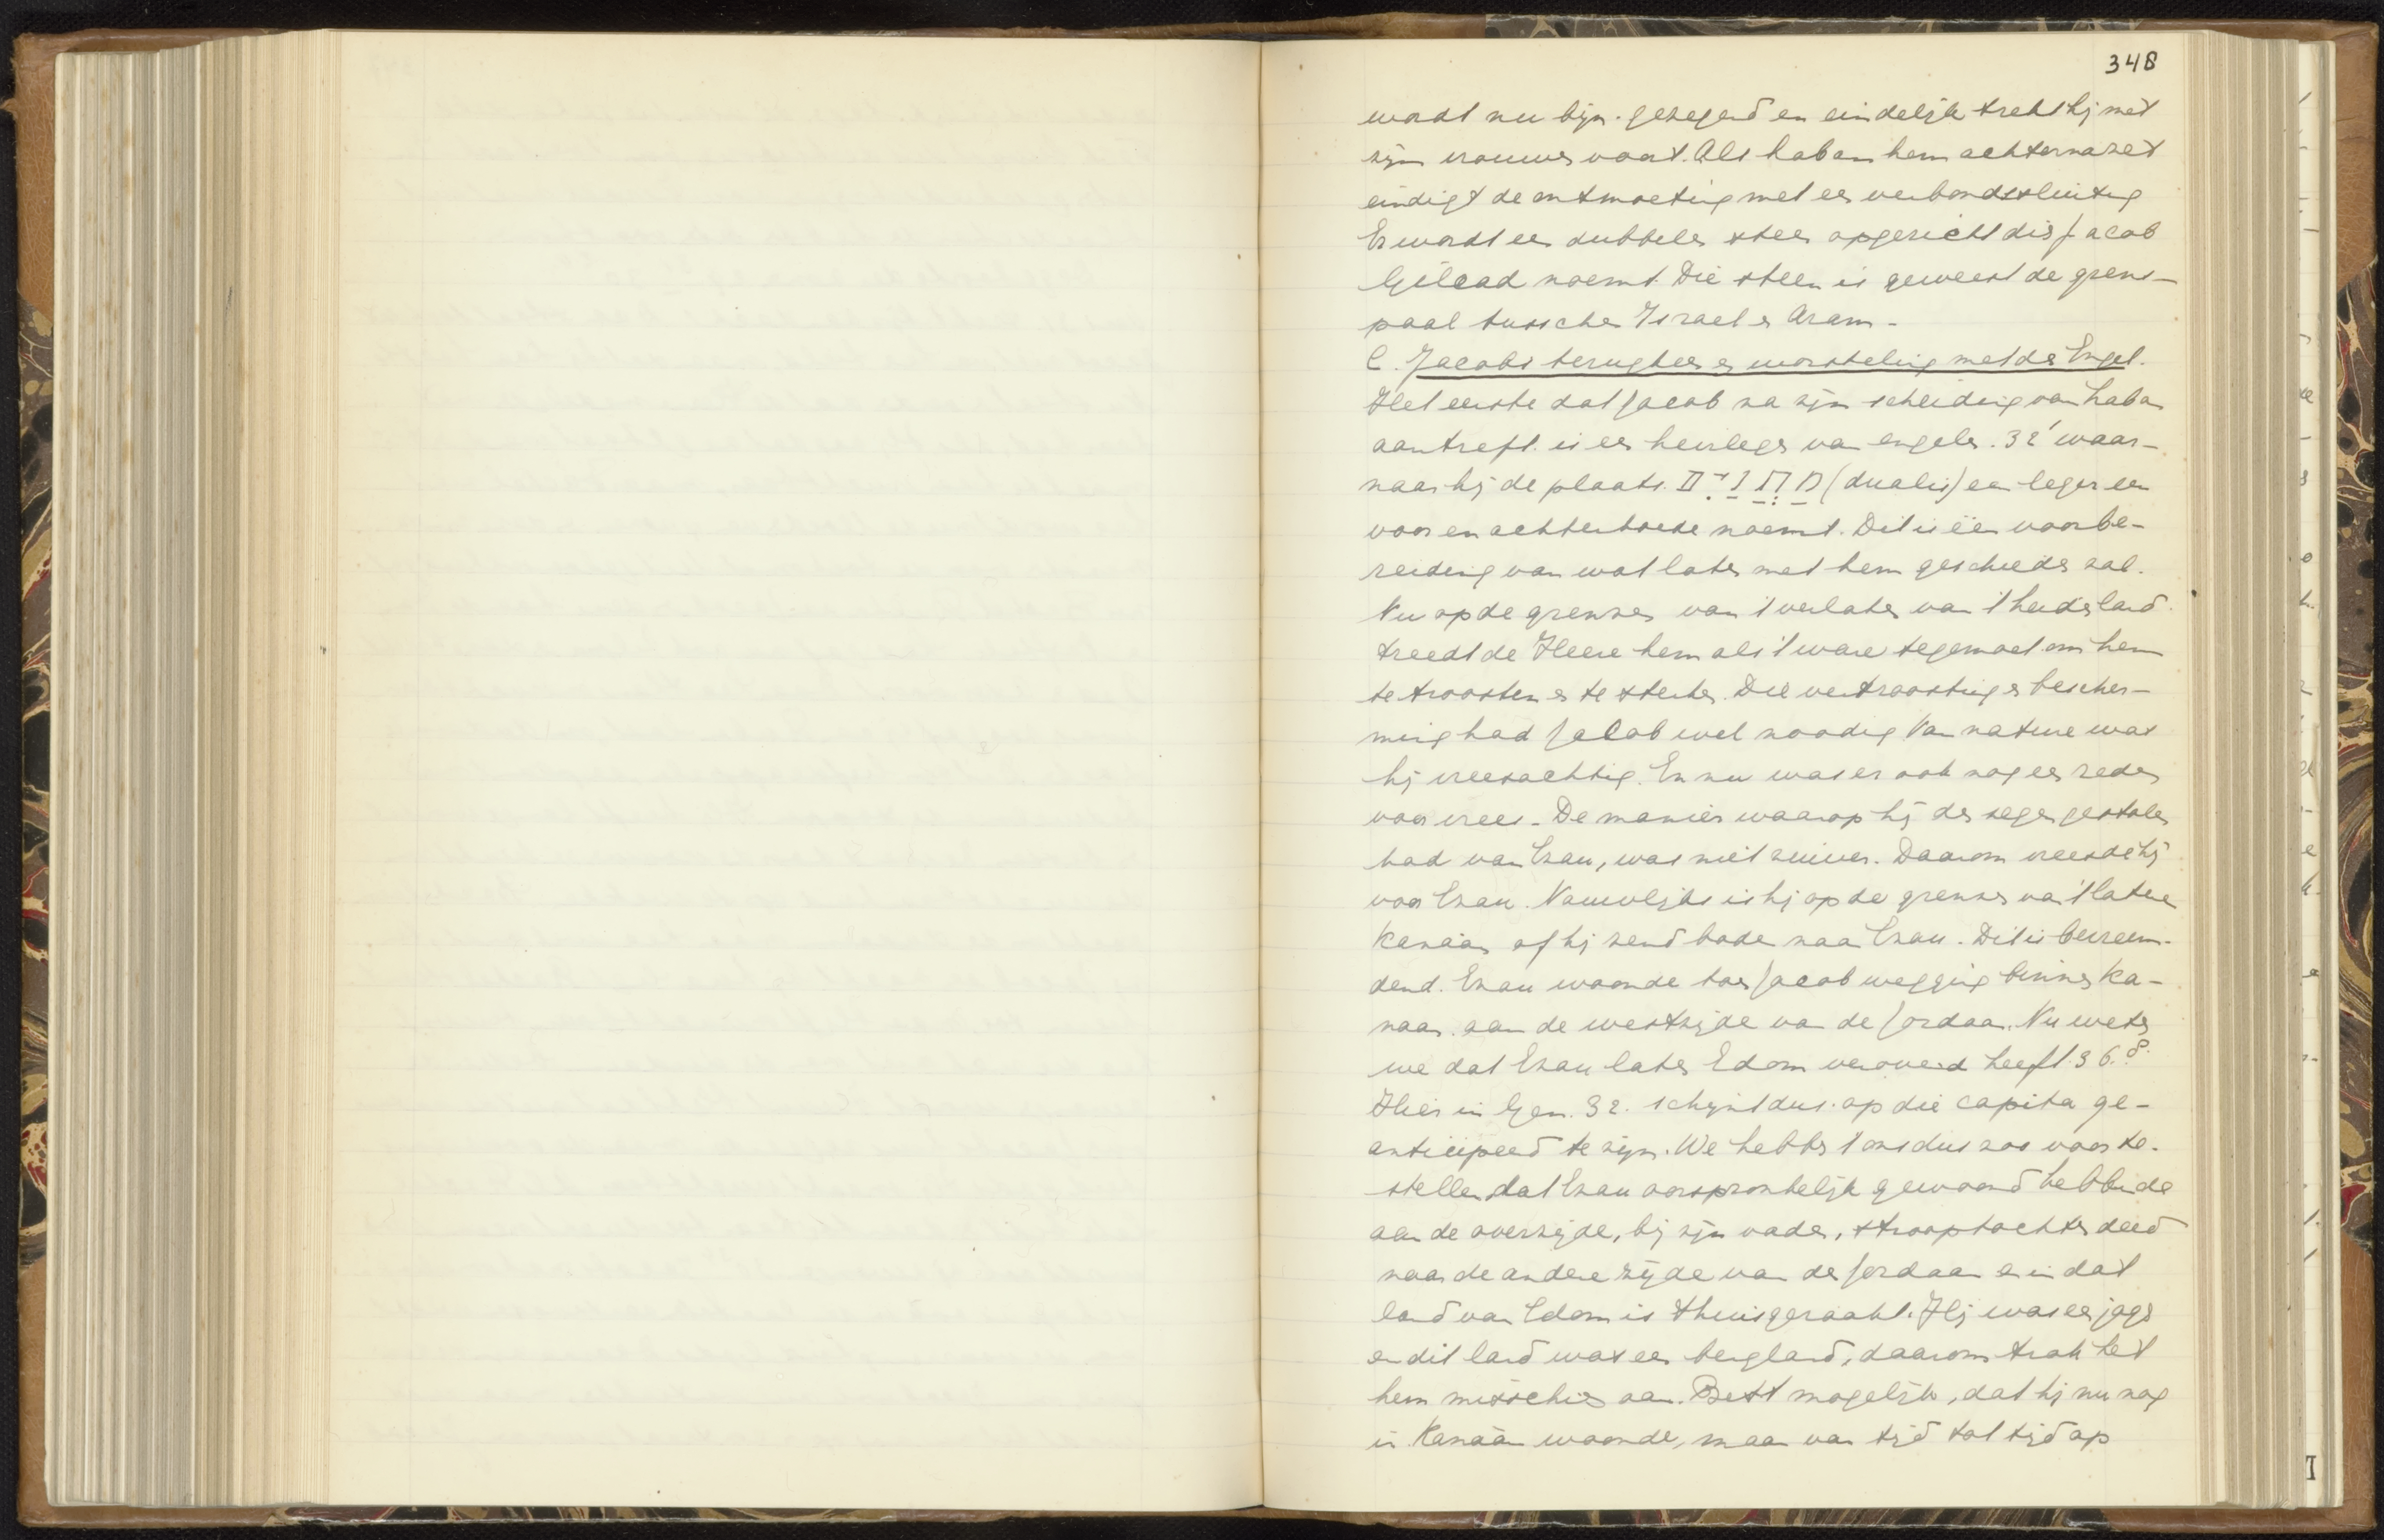 348
wordt nu bijz. gezegend en eindelijk trekt hij met
zijn vrouwen voort. Als Laban hem achternazet
eindigt de ontmoeting met een verbondssluiting
Er wordt een dubbele steen opgericht die Jacob
Gilead noemt. Die steen is geweest de grens-
paal tusschen Israel en Aram-
C. Jacobs terugkeer en worsteling met den Engel.
Het eerste dat Jacob na zijn scheiding van Laban
aantreft is een heirleger van engelen. 32¹ waar-
naar hij de plaats מַחֲנַיִם (dualis) een leger een
voor en achterhoede noemt. Dit is een voorbe-
reiding van wat later met hem geschieden zal.
Nu op de grenzen van 't verlaten van 't heidenland
treedt de Heere hem als 't ware tegemoet om hem
te troosten en te sterken. Die vertroosting en bescher-
ming had Jacob wel noodig Van nature was
hij vreesachtig. En nu was er ook nog een reden
voor vrees. De manier waarop hij den zegen gestolen
had van Ezau, was niet zuiver. Daarom vreesde hij
voor Ezau. Nauwlijks is hij op de grenzen van 't latere
Kanaän of hij zend bode naar Ezau. Dit is bevreem-
dend. Ezau woonde toen Jacob wegging binnen Ka-
naan aan de westzijde van de Jordaan. Nu weten
we dat Ezau later Edom veroverd heeft 36.8.
Hier in Gen. 32. schijnt dus op die capita ge-
anticipeerd te zijn. We hebben 't ons dus zoo voor te-
stellen dat Ezau oorspronkelijk gewoond hebbende
aan de overzijde, bij zijn vader, strooptochten deed
naar de andere zijde van de Jordaan en in dat
land van Edom is thuisgeraakt. Hij was een jager
en dit land was een bergland, daarom trok het
hem misschien aan. Best mogelijk, dat hij nu nog
in Kanaän woonde, maar van tijd tot tijd op